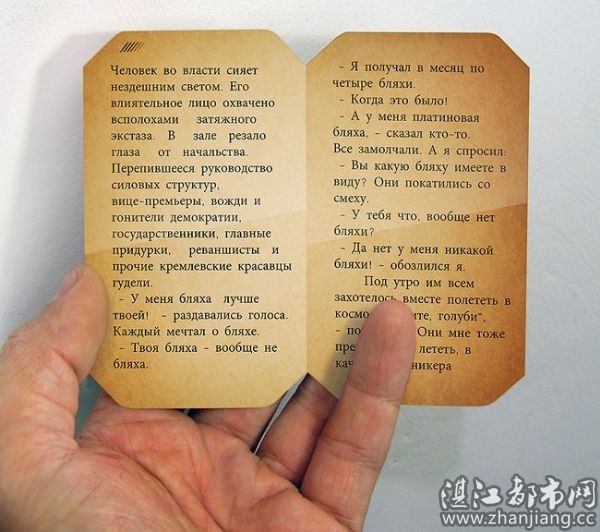 Человек во власти сияет
нездешним светом. Его
влиятельное лицо охвачено
всполохами затяжного
экстаза. В зале резало
глаза от начальства.
Перепившееся руководство
силовых структур,
вице-премьеры, вожди и
гонители демократии,
государственники, главные
придурки, реваншисты и
прочие кремлевские красавцы
гудели.
- У меня бляха лучше
твоей! - раздавались голоса.
Каждый мечтал о бляхе.
- Твоя бляха - вообще не
бляха.
- Я получал в месяц по
четыре бляхи.
- Когда это было!
- А у меня платиновая
бляха, - сказал кто-то.
Все замолчали. А я спросил:
- Вы какую бляху имеете в
виду? Они покатились со
смеху.
- У тебя что, вообще нет
бляхи?
- Да нет у меня никакой
бляхи! - обозлился я.
Под утро им всем
захотелось вместе полететь в
голуби",
- Они мне тоже
лететь, в
湛江都市网
www.zhanjiang.cc